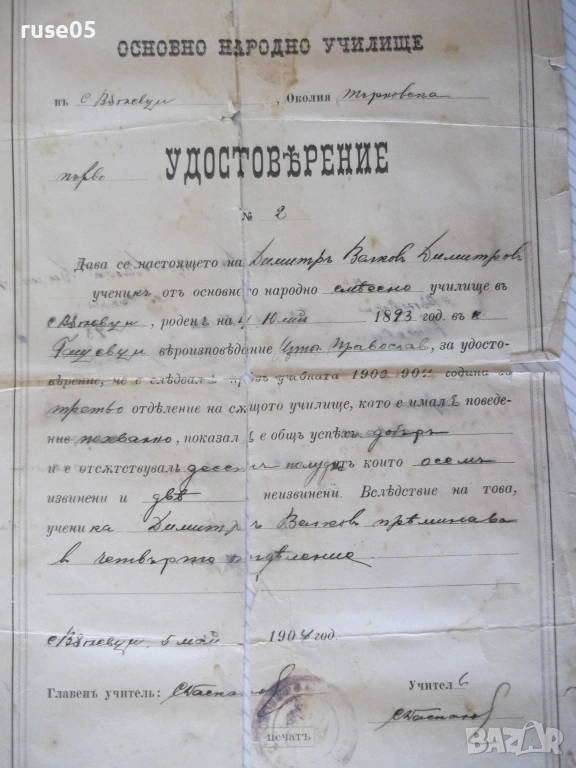 ruse05
ОСНОВНО НАРОДНО УЧИЛИЩЕ
въ с , Околия Търновска
първо УДОСТОВѢРЕНИЕ
№ 2
Дава се настоящето на Димитръ Вълковъ Димитровъ
ученикъ отъ основно народно смѣсено училище въ
с , роденъ на Юлий 1893 год. въ с
вѣроизповѣдание Изт. Православ, за удосто-
вѣрение, че е слѣдвалъ прѣзъ учебната 1903/904 година въ
трето отдѣление на сѫщото училище, като е ималъ поведе-
ние похвално, показалъ е общъ успѣхъ добъръ
и е отсѫтствувалъ десеть полудни отъ които осемь
извинени и двѣ неизвинени. Вслѣдствие на това,
ученика Димитръ Вълковъ прѣминава
в четвърто отдѣление.
с 5 май 1904 год.
Главенъ учитель: Учител
печатъ
BAZAR